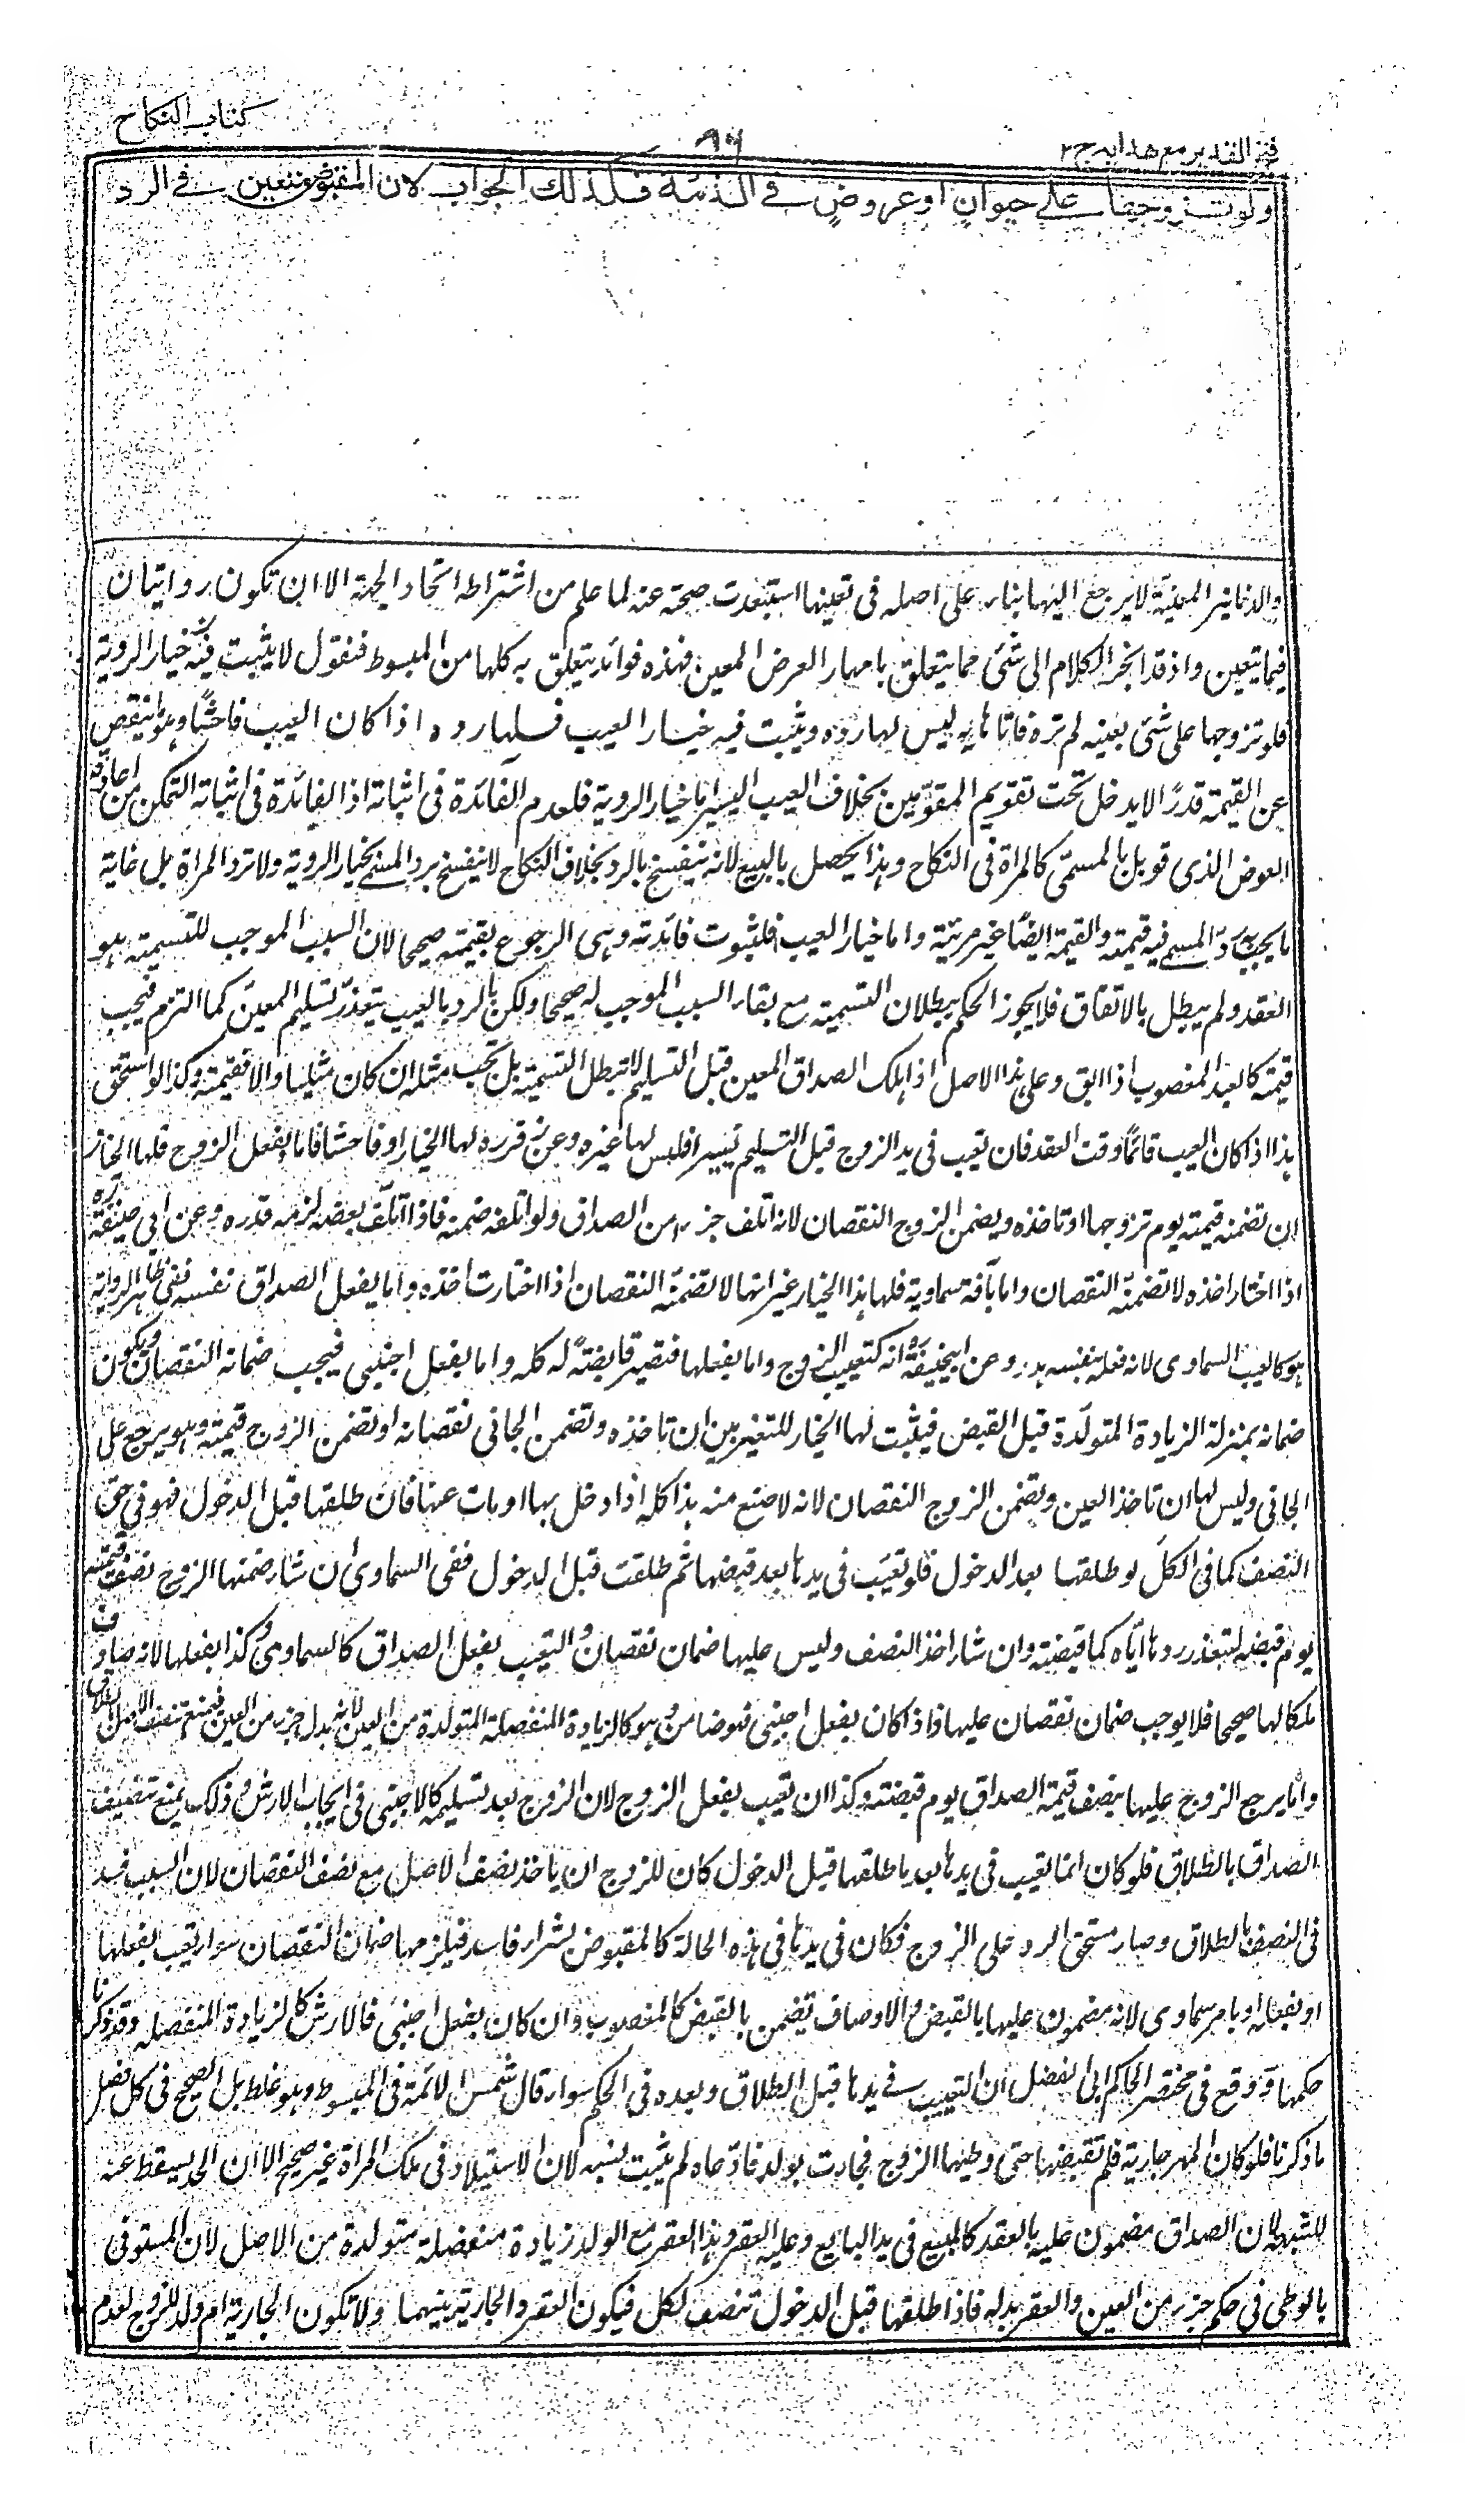 كتاب النكاح
٩٦
فتح القدير مع هدايه ج٢
ولو تزوجها على حيوان او عروض فى الذمة فكذلك الجواب لان المقبوض متعين فى الرد
والدنانير المعينة لا يرجع اليها بناء على اصله فى تعينها استبعدت صحته عنه لما علم من اشتراطه اتحاد الجهة الا ان تكون روايتان
فيما يتعين واذ قد انجر الكلام الى شئ مما يتعلق بامهار العرض المعين فهذه فوائد يتعلق به كلها من المبسوط فنقول لا يثبت فيه خيار الروية
فلو تزوجها على شئ بعينه لم تره فاتاها به ليس لها رده ويثبت فيه خيار العيب فلها رده اذا كان العيب فاحشا وهو ما ينقص
عن القيمة قدرًا لا يدخل تحت تقويم المقومين بخلاف العيب اليسير اما خيار الروية فلعدم الفائدة فى اثباته اذ الفائدة فى اثباته التمكن من اعادة
العوض الذى قوبل بالمسمى كالمراة فى النكاح وهذا يحصل بالبيع لانه ينفسخ بالرد بخلاف النكاح لا ينفسخ برد المسمى بخيار الروية ولا ترد المراة بل غاية
ما يجب برد المسمى فيه قيمته والقيمة ايضًا غير مرئية واما خيار العيب فلثبوت فائدته وهى الرجوع بقيمته صحيحا لان السبب الموجب للتسمية هو
العقد ولم يبطل بالاتفاق فلا يجوز الحكم ببطلان التسمية مع بقاء السبب الموجب له صحيحا ولكن بالرد بالعيب يتعذر تسليم المعين كما التزم فيجب
قيمته كالعبد المغصوب اذا ابق وعلى هذا الاصل اذا هلك الصداق المعين قبل التسليم لا تبطل التسمية بل يجب مثله ان كان مثليا والا فقيمته وكذا لو استحق
هذا اذا كان العيب قائمًا وقت العقد فان تعيب فى يد الزوج قبل التسليم يسيرا فليس لها غيره وعن زفر ره لها الخيار او فاحشا فاما بفعل الزوج فلها الخيار
ان تضمنه قيمته يوم تزوجها او تاخذه ويضمن الزوج النقصان لانه اتلف جزء من الصداق ولو اتلفه ضمنه فاذا اتلف بعضه لزمه قدره وعن ابى حنيفة ره
اذا اختار اخذه لا تضمنه النقصان واما بآفة سماوية فلها هذا الخيار غير انها لا تضمنه النقصان اذا اختارت اخذه واما بفعل الصداق نفسه ففى ظاهر الرواية
هو كالعيب السماوى لانه فعله بنفسه هدر وعن ابيحنيفة ره انه كتعييب الزوج واما بفعلها فتصير قابضةً له كله واما بفعل اجنبى فيجب ضمانه النقصان ويكون
ضمانه بمنزلة الزيادة المتولدة قبل القبض فيثبت لها الخيار للتغير بين ان تاخذه وتضمن الجانى نقصانه او تضمن الزوج قيمته وهو يرجع على
الجانى وليس لها ان تاخذ العين وتضمن الزوج النقصان لانه لا صنع منه هذا كله اذا دخل بها او مات عنها فان طلقها قبل الدخول فهو فى حق
النصف كما فى الكل لو طلقها بعد الدخول فلو تعيب فى يدها بعد قبضها ثم طلقت قبل الدخول ففى السماوى ان شاء ضمنها الزوج نصف قيمته
يوم قبضه لتعذر ردها اياه كما قبضته وان شاء اخذ النصف وليس عليها ضمان نقصان والتعيب بفعل الصداق كالسماوى وكذا بفعلها لانه صادف
ملكا لها صحيحا فلا يوجب ضمان نقصان عليها واذا كان بفعل اجنبى فهو ضامن وهو كالزيادة المنفصلة المتولدة من العين لانه بدل جزء من العين فيمنع تنصف الاصل بالطلاق
وانما يرجع الزوج عليها بنصف قيمة الصداق يوم قبضته وكذا ان تعيب بفعل الزوج لان الزوج بعد تسليمه كالاجنبى فى ايجاب الارش وذلك يمنع تنصيف
الصداق بالطلاق فلو كان انما تعيب فى يدها بعد ما طلقها قبل الدخول كان للزوج ان ياخذ نصف الاصل مع نصف النقصان لان السبب فسد
فى النصف بالطلاق وصار مستحق الرد على الزوج فكان فى يدها فى هذه الحالة كالمقبوض بشراء فاسد فيلزمها ضمان النقصان سواء تعيب بفعلها
او بفعله او بامر سماوى لانه مضمون عليها بالقبض والاوصاف تضمن بالقبض كالمغصوب وان كان بفعل اجنبى فالارش كالزيادة المنفصلة وقد ذكرنا
حكمها ووقع فى مختصر الحاكم ابى الفضل ان التعييب فى يدها قبل الطلاق وبعده فى الحكم سواء قال شمس الائمة فى المبسوط وهو غلط بل الصحيح فى كل فصل
ما ذكرنا فلو كان المهر جارية فلم تقبضها حتى وطيها الزوج فجاءت بولد فادعاه لم يثبت نسبه لان الاستيلاد فى ملك المراة غير صحيح الا ان الحد يسقط عنه
للشبهة لان الصداق مضمون عليه بالعقد كالمبيع فى يد البايع وعليه العقر وهذا العقر مع الولد زيادة منفصلة متولدة من الاصل لان المستوفى
بالوطى فى حكم جزء من العين والعقر بدله فاذا طلقها قبل الدخول تنصف الكل فيكون العقر والجارية بينهما ولا تكون الجارية ام ولد للزوج لعدم